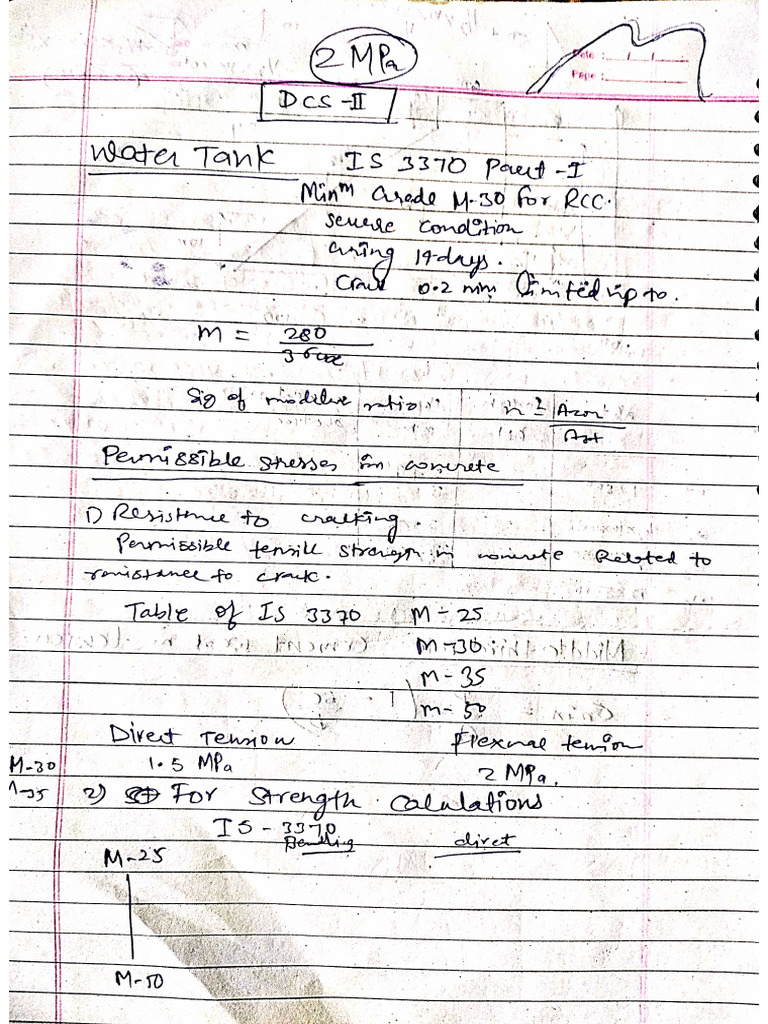 2 MPa
Date : __/__/__
Page : ______
DCS -II
Water Tank IS 3370 Part -I
Minᵐ Grade M-30 for RCC.
severe condition
curing 14 days.
Crack 0.2 mm limited up to.
m = 280 / 3σcbc
Sig of modular ratio m = Acon / Ast
Permissible stresses in concrete
1) Resistance to cracking.
Permissible tensile strength in concrete Related to
resistance to crack.
Table of IS 3370 M-25
M-30
M-35
M-50
Direct Tension Flexural tension
M-30 1.5 MPa 2 MPa.
M-35 2) For Strength Calulations
IS - 3370
Bending direct
M-25
M-50